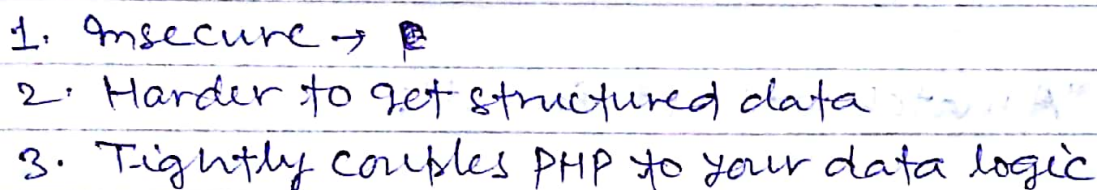 1. Insecure →
2. Harder to get structured data
3. Tightly couples PHP to your data logic